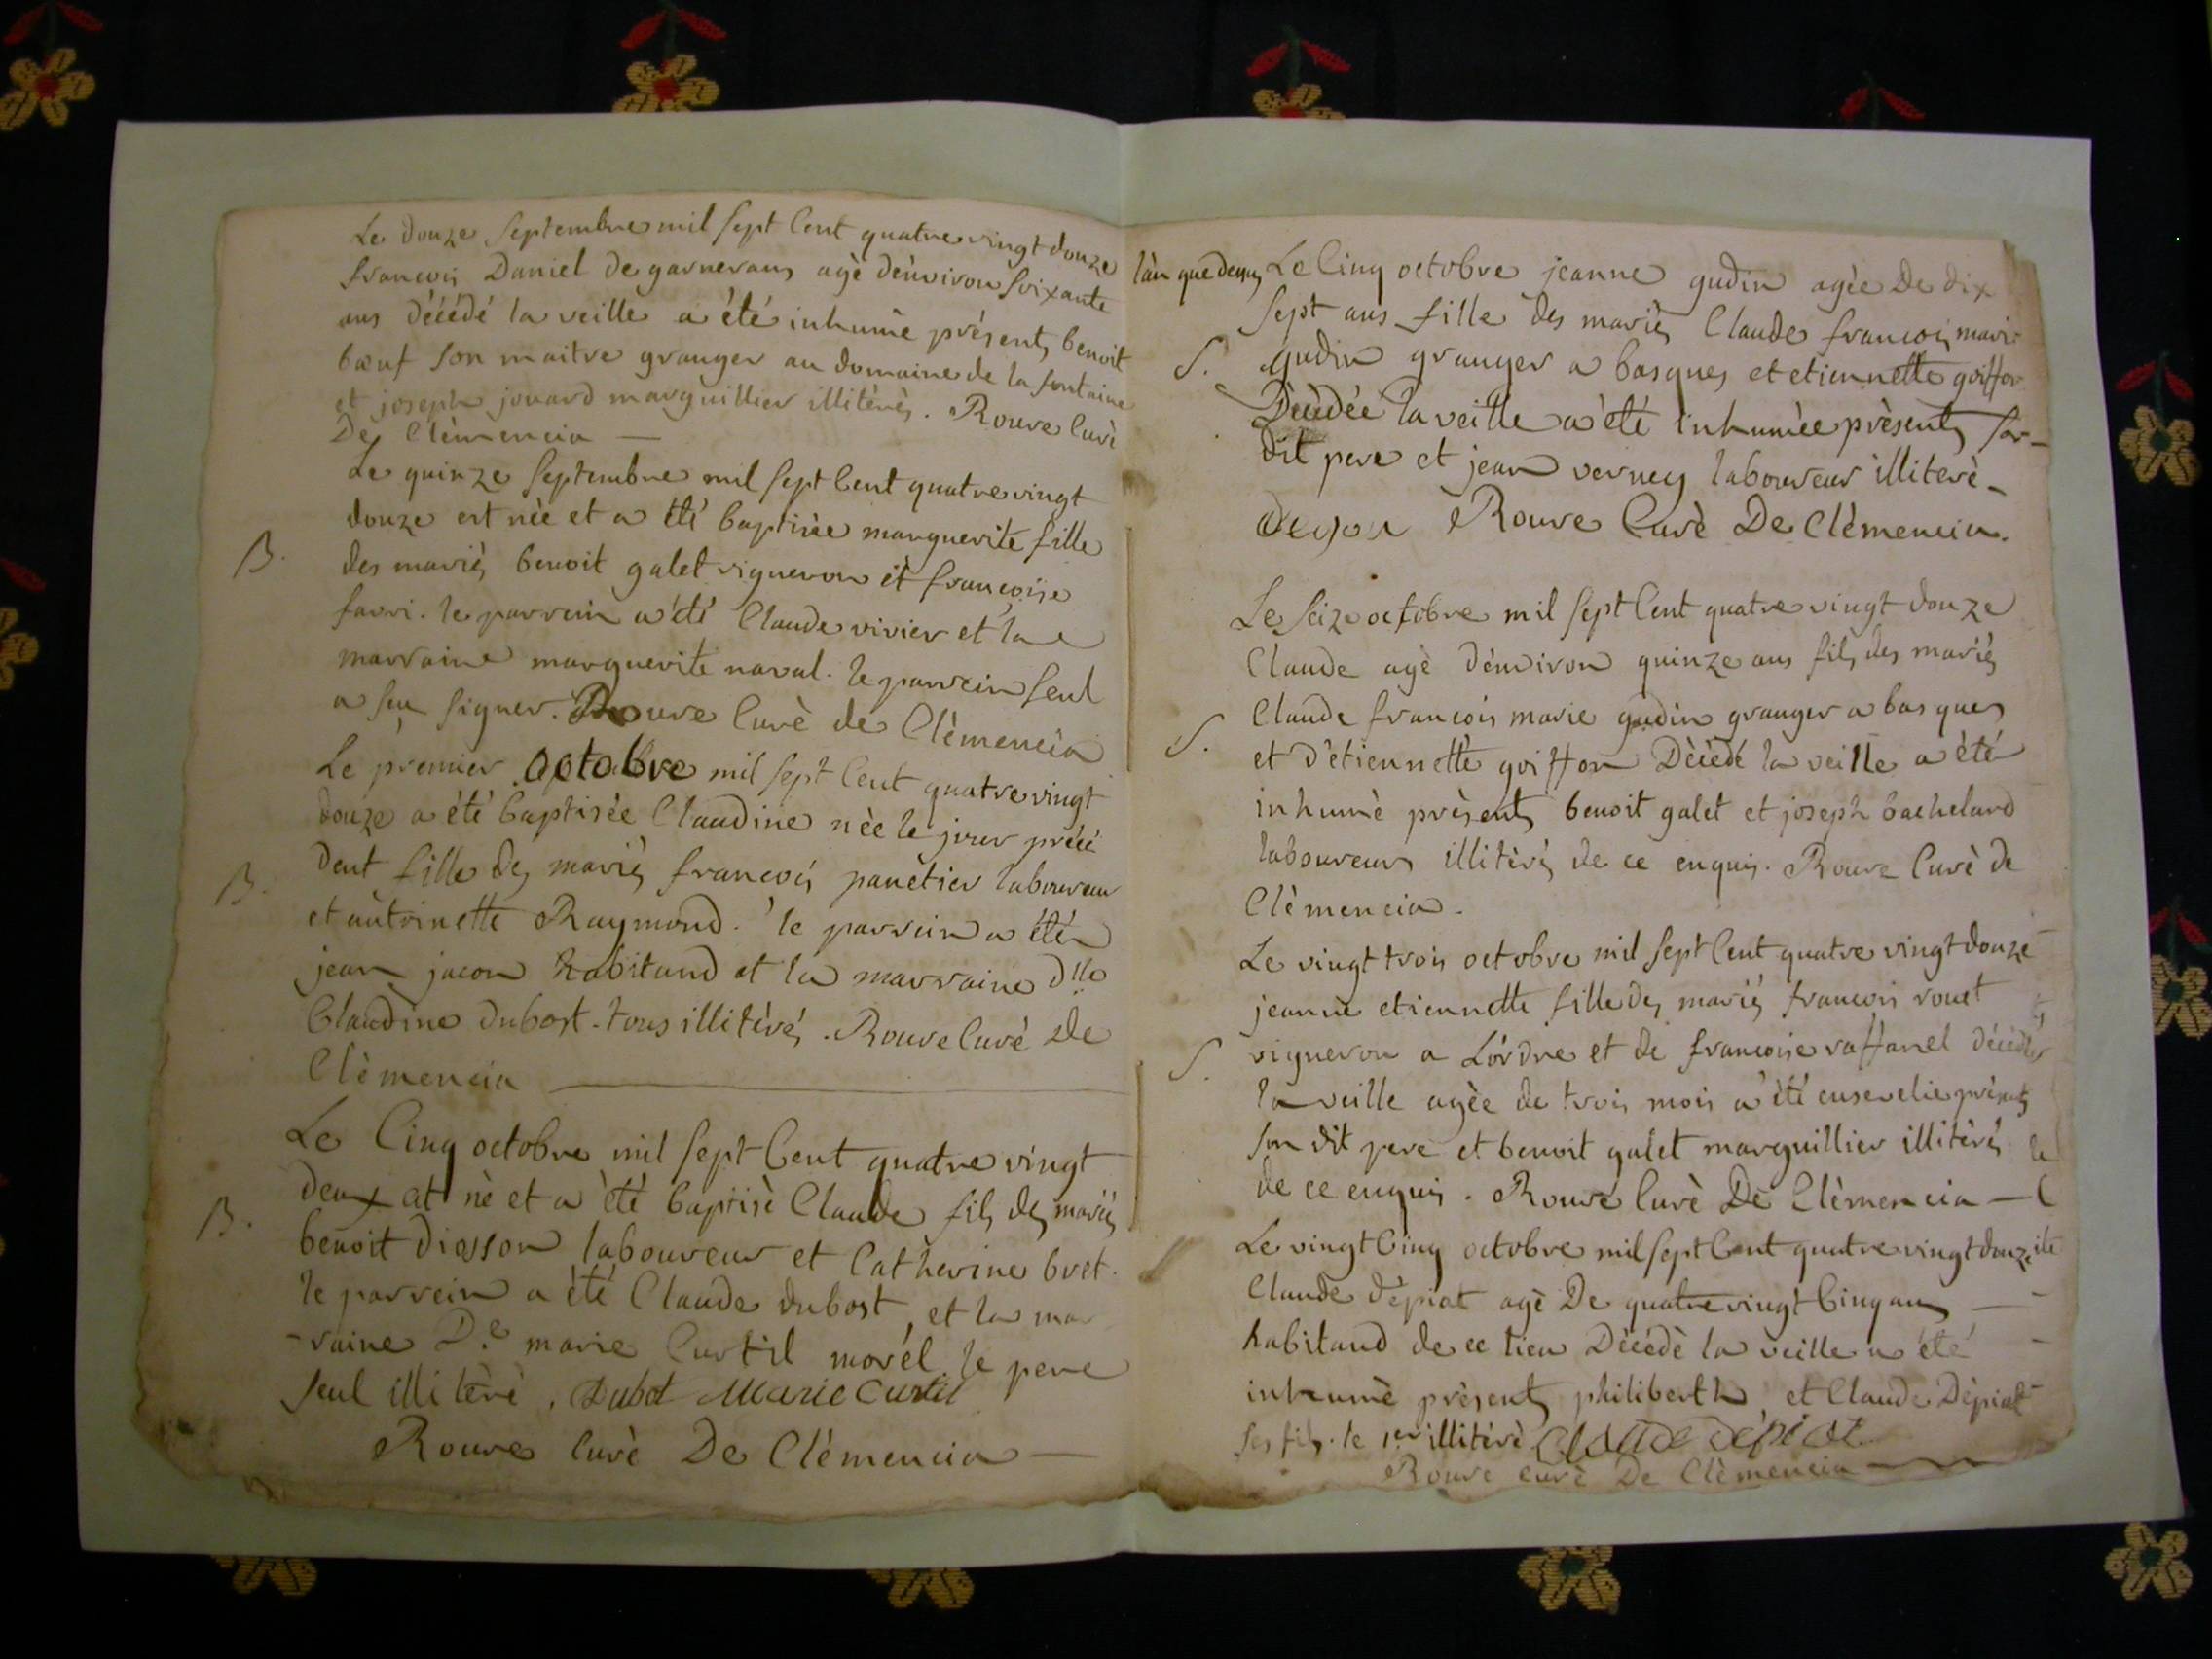 Le douze Septembre mil sept Cent quatre vingt douze
francois Daniel de garnerans agè denviron soixante
ans décédé la veille a été inhumè présents benoit
bœuf son maitre granger au domaine de la fontaine
et joseph jouard marguillier illitérés. Rouve Curè
De Clèmencia —
Le quinze Septembre mil sept Cent quatre vingt
douze est nèe et a été baptisèe marguerite fille
B.
des mariés benoit galet vigneron et françoise
favri. le parrein a été Claude vivier et la
marraine marguerite naval. le parrein seul
a seu signer. Rouve Curè de Clèmencia
Le premier octobre mil sept Cent quatre vingt
douze a été baptisée Claudine nèe le jour précé
B.
dent fille des mariés francois panetier laboureur
et antoinette Raymond. le parrein a été
jean jacon habitand et la marraine dlle
Claudine dubost. tous illitérés. Rouve Curé de
Clèmencia —
Le Cinq octobre mil sept Cent quatre vingt
B.
deux est nè et a été baptisè Claude fils des mariés
benoit diosson laboureur et Catherine bret.
le parrein a été Claude dubost, et la mar
-raine De marie Curtil morél le pere
seul illitèrè. Dubot Marie Curtil
Rouve Curè De Clèmencia —
l'an que dessus Le Cinq octobre jeanne gudin agèe de dix
sept ans fille des mariés Claude francois marie
S.
gudin granger a basques et etiennette goiffon
Dècèdée la veille a été inhumèe prèsents son
dit pere et jean verney laboureur illiterè-
Rouve Curè De Clèmencia.
Le Seize octobre mil sept Cent quatre vingt douze
Claude agè dènviron quinze ans fils des mariés
Claude francois marie gudin granger a basques
S.
et d'etiennette goiffon Dècèdé la veille a été
inhumè prèsents benoit galet et joseph bachelard
laboureurs illitérés de ce enquis. Rouve Curè de
Clèmencia.
Le vingt trois octobre mil sept Cent quatre vingt douze
jeanne etiennette fille des mariés francois rouet
S.
vigneron a Lórdre et de francoise raffanel décèdée
la veille agèe de trois mois a été ensevelie présents
son dit pere et benoit galet marguillier illitérés
de ce enquis. Rouve Curè De Clèmencia —
Le vingt Cinq octobre mil sept Cent quatre vingt douze
Claude dèpiat agè De quatre vingt Cinq ans —
habitand de ce lieu Dècédè la veille a été
inhumè présents philiberth et Claude Dèpiat
ses fils. le 1er illitèrè Claude dépiat
Rouve curè De Clèmencia —